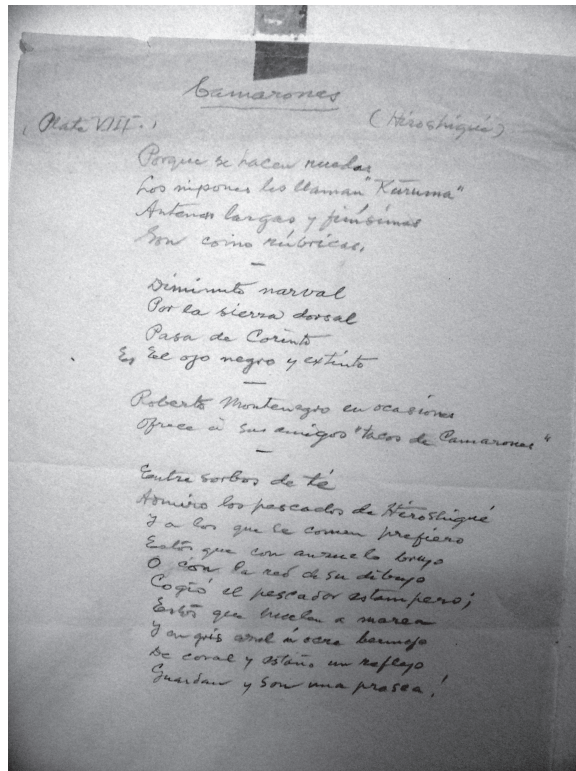 Camarones
(Plate VIII.)
(Hiroshigué)
Porque se hacen ruedas
Los nipones les llaman "Kuruma"
Antenas largas y finísimas
Son como rúbricas.
—
Diminuto narval
Por la sierra dorsal
Pasa de Corinto
Es El ojo negro y extinto
—
Roberto Montenegro en ocasiones
Ofrece á sus amigos "tacos de Camarones"
—
Entre sorbos de té
Admiro los pescados de Hiroshigué
Y a los que se comen prefiero
Estos que con anzuelo brujo
O con la red de su dibujo
Cogió el pescador estampero;
Estos que huelen a marea
Y en gris azul ú ocre bermejo
De coral y estaño un reflejo
Guardan y son una presea!